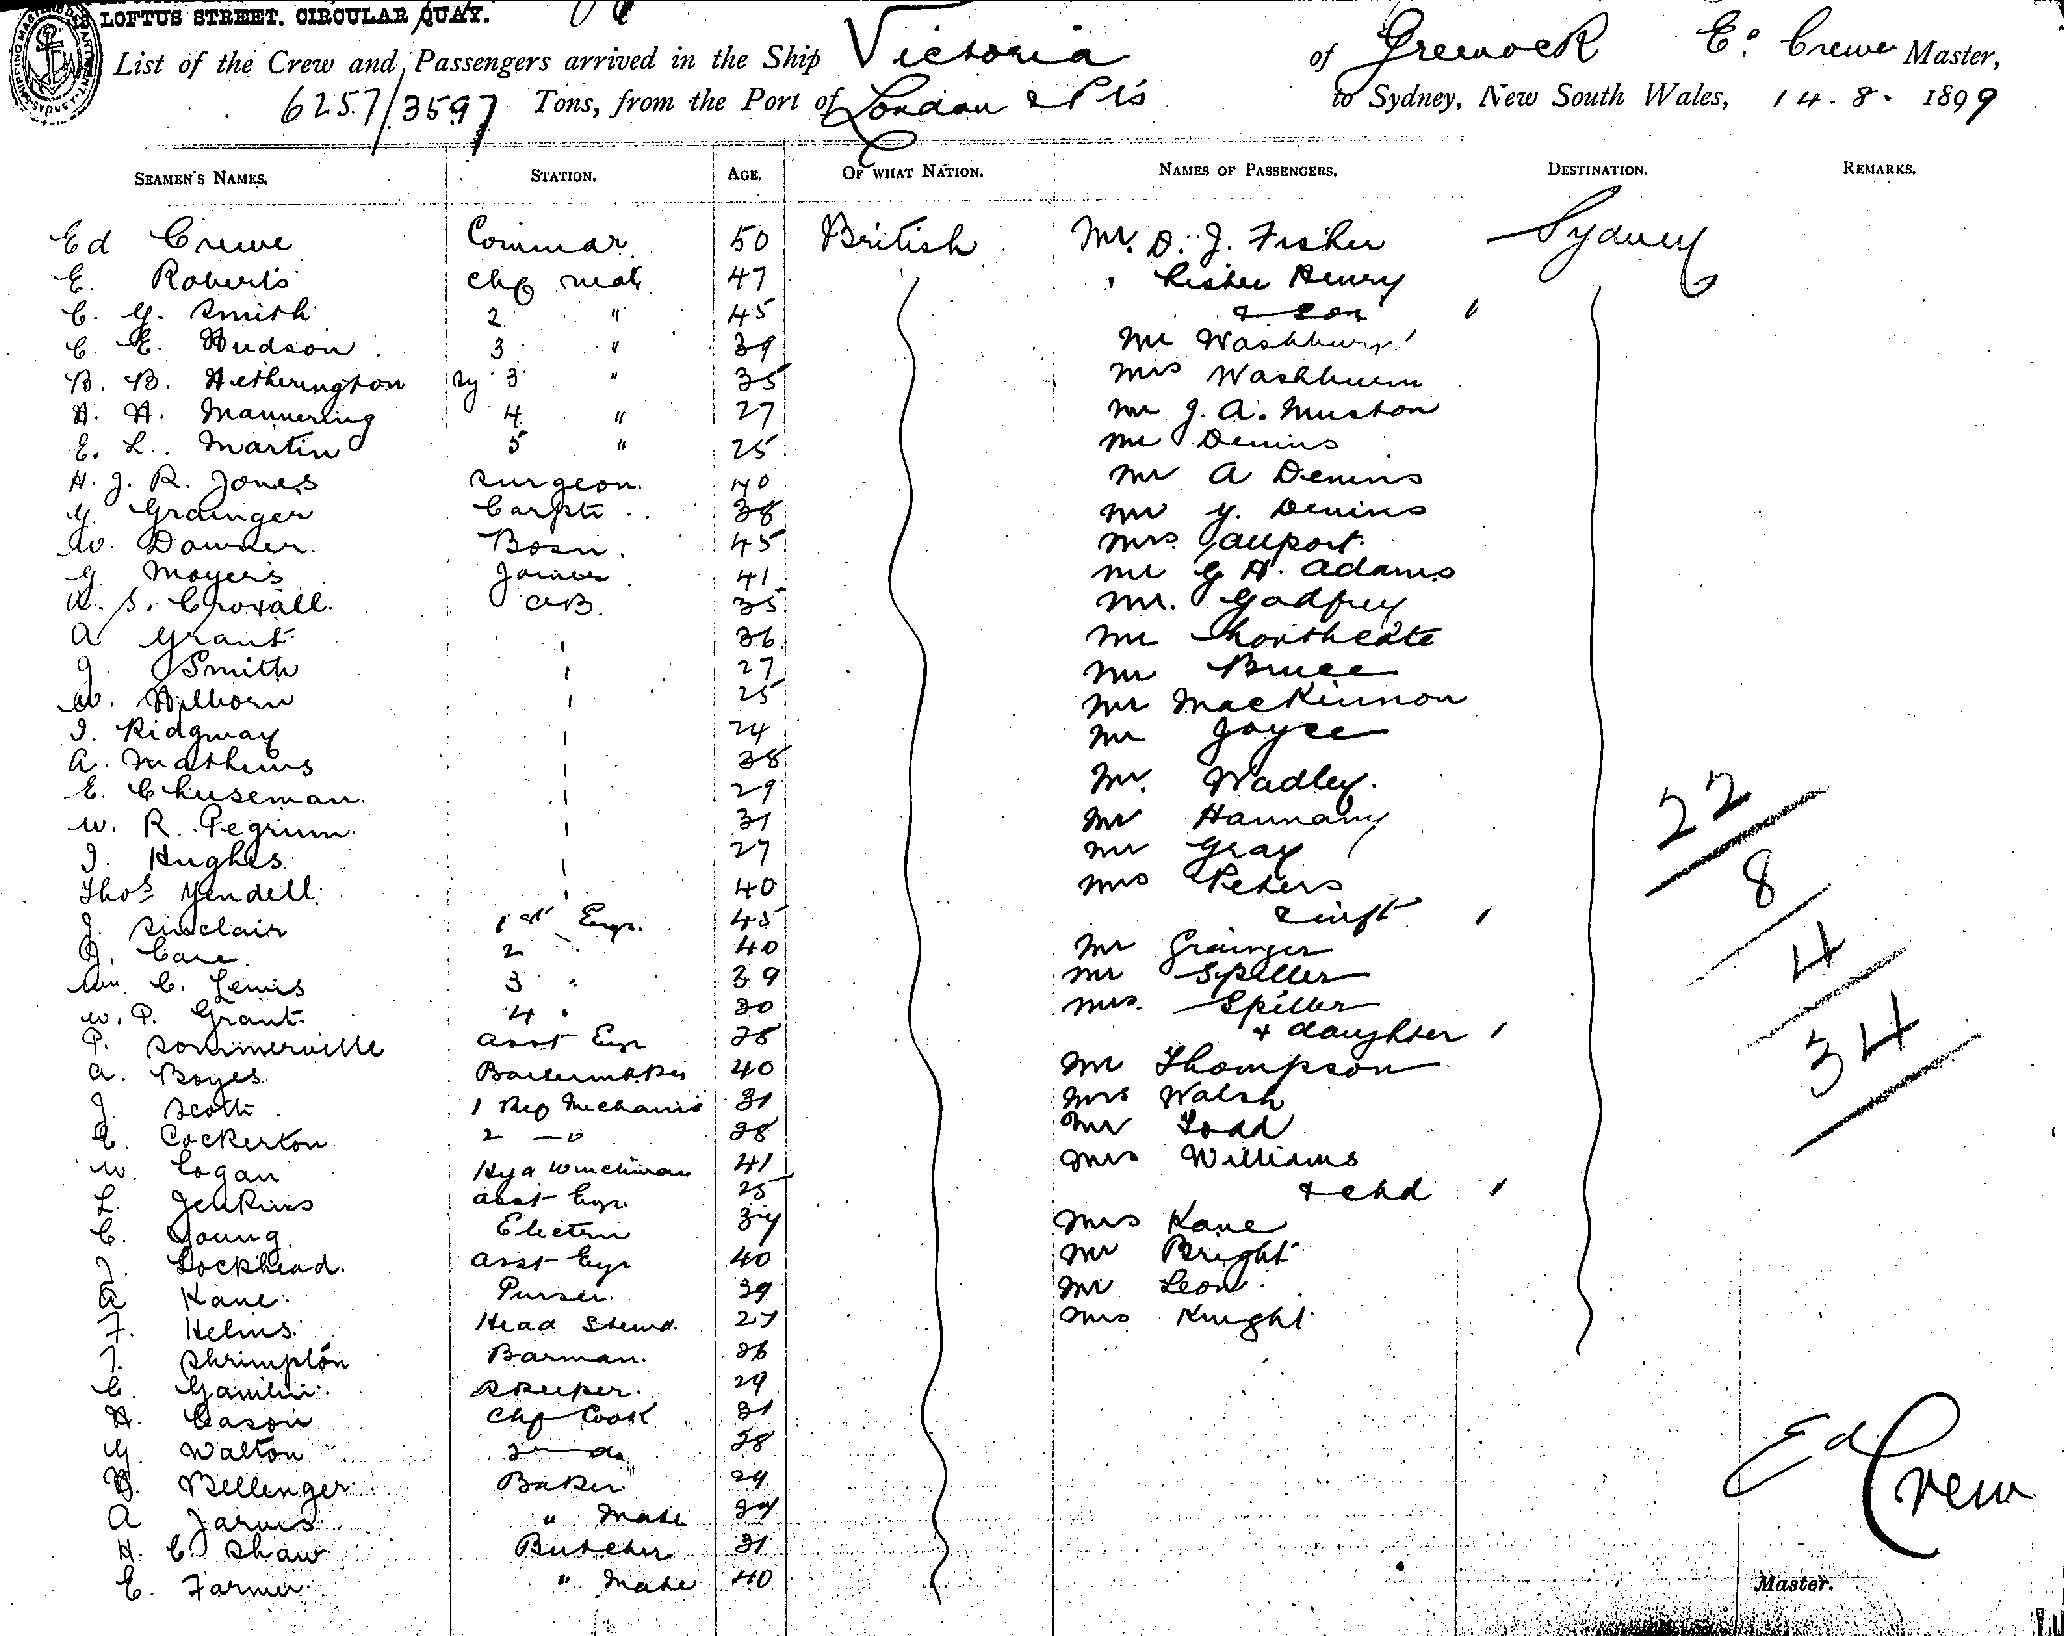 LOFTUS STREET. CIRCULAR QUAY.
List of the Crew and Passengers arrived in the Ship Victoria of Greenock Ed. Crewe Master,
6257/3597 Tons, from the Port of London & Pts to Sydney, New South Wales, 14.8.1899
SEAMEN'S NAMES. STATION. AGE. OF WHAT NATION. NAMES OF PASSENGERS. DESTINATION. REMARKS.
Ed Crewe Commdr. 50 British Mr. D. J. Fisher Sydney
E. Roberts Chf mate 47 Henry
C. G. Smith 2 " 45 & son
C. E. Hudson 3 " 39 Mr Washburn
B. B. Hetherington 3 " 35 Mrs Washburn
H. H. Mannering 4 " 27 Mr J. A. Muston
E. L. Martin 5 " 25 Mr Denins
H. J. R. Jones Surgeon 40 Mr A Denins
G. Grainger Carptr 38 Mr G. Denins
W. Downer Bosn. 45 Mrs
G Moyers Joiner 41 Mr G H. Adams
S. Croxall AB. 35 Mr. Godfrey
A Grant " 36 Mr
J Smith " 27 Mr Bruce
W. Hilborn " 25 Mr MacKinnon
I. Ridgway " 24 Mr Joyce
A. Mathews " 38
E. Chuseman " 29 Mr. Wadley.
W. R. Pegrum " 31 Mr Hannam
J. Hughes " 27 Mr Gray
Thos Yendell " 40 Mrs Peters
J. Sinclair 1st Engr. 45 & inft
J. Care 2 " 40 Mr Grainger
Wm C. Lewis 3 " 39 Mr Spiller
W. P. Grant 4 " 30 Mrs. Spiller
P. Sommerville Asst Engr 28 & daughter
A. Boyes Boilermaker 40 Mr Thompson
J. Scott 1 Rfg Mechanic 31 Mrs Walsh
E. Cockerton 2 —do 28 Mr Todd
W. Cogan Hyd Winchman 41 Mrs Williams
L. Jenkins Asst Engr 25 & chd
C. Young Electrn 34 Mrs Kane
J. Lockhead Asst Engr 40 Mr Bright
A Kane Purser 39 Mr Leon
F. Helms Head Stewd. 27 Mrs Knight
J. Shrimpton Barman. 26
C. Skeeper. 29
H. Cason Chf Cook 31
G Walton 2nd do 28
B. Bellenger Baker 24
A Jarvis " Mate 24
H. C. Shaw Butcher 31
E. Farmer " Mate 40
22
8
4
34
Ed Crewe
Master.